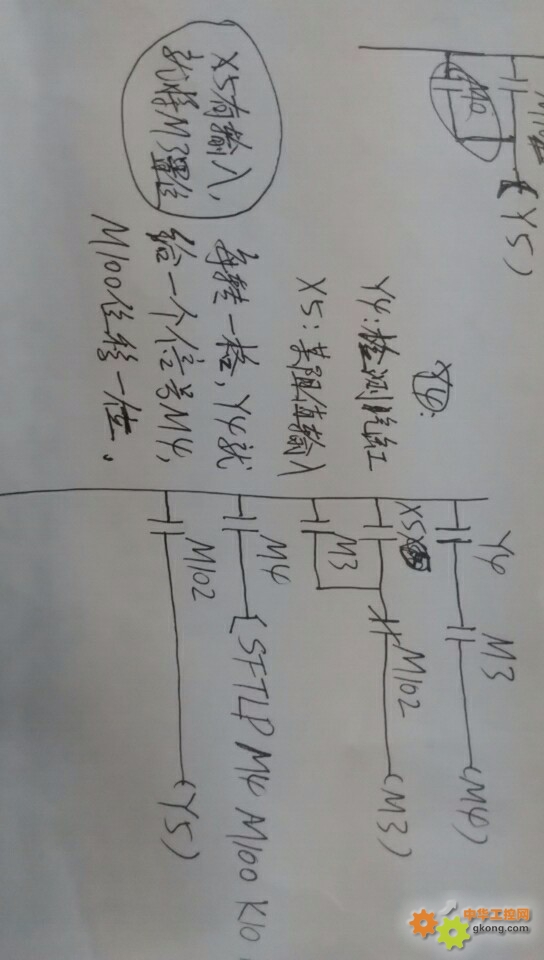 M0
(Y5)
Y4:检测
X5:某阻值输入
每转一格,Y4就
给一个信号M4,
M100位移一位。
X5有输入,
就将M3置位
Y4 M3 (M4)
X5 M102 (M3)
M3
M4 [SFTLP M4 M100 K10
M102 (Y5)
中华工控网
gkong.com